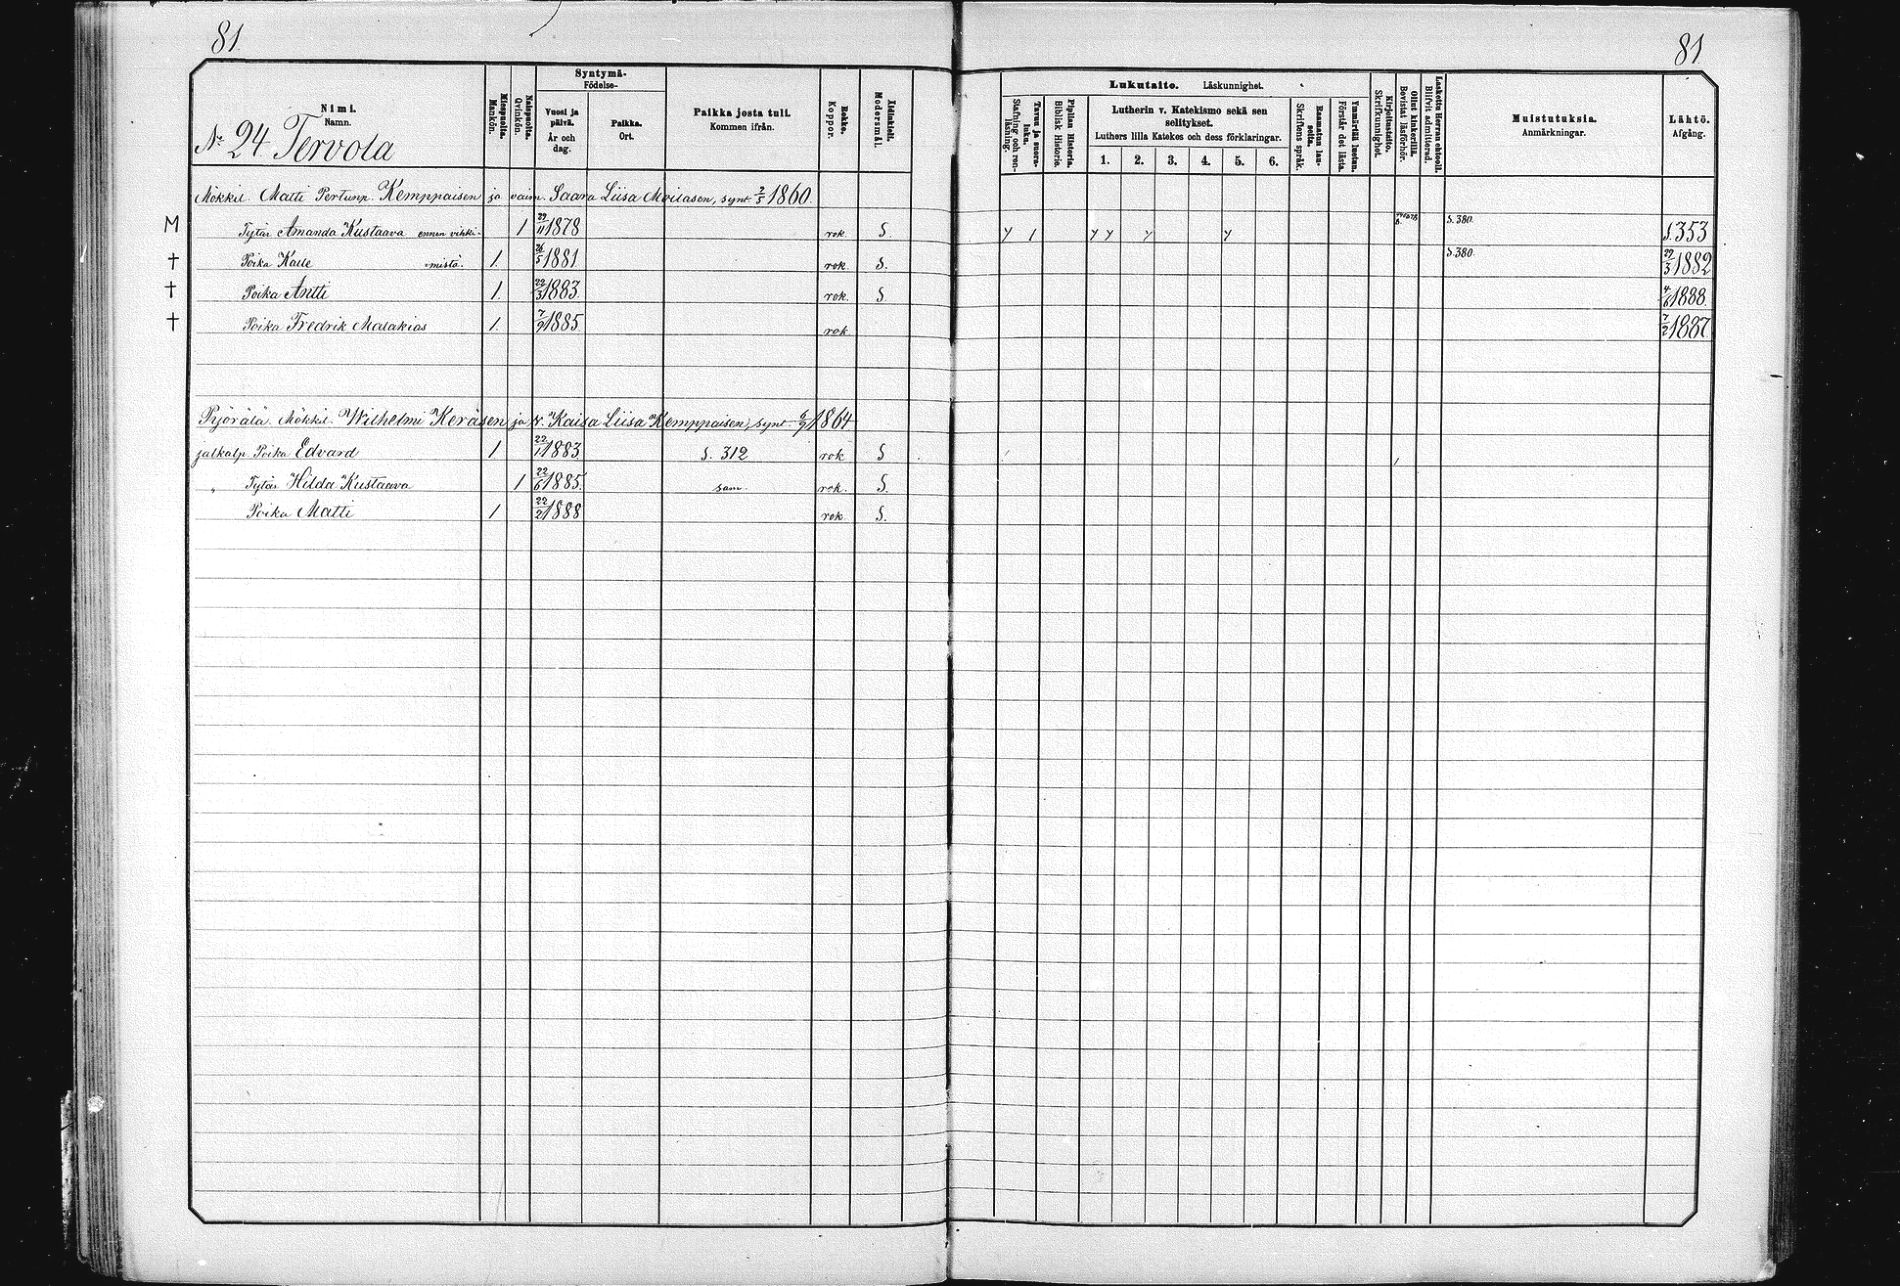 81
81
Nimi.
Namn.
№ 24 Tervola
Miespuolta.
Mankön.
Naispuolta.
Qvinkön.
Syntymä-
Födelse-
Vuosi ja päivä.
År och dag.
Paikka.
Ort.
Paikka josta tuli.
Kommen ifrån.
Rokko.
Koppor.
Äidinkieli.
Modersmål.
Lukutaito. Läskunnighet.
Tavuu ja suora-luku.
Stafning och ren-läsning.
Piplian Historia.
Biblisk Historia.
Lutherin v. Katekismo sekä sen selitykset.
Luthers lilla Katekes och dess förklaringar.
1. 2. 3. 4. 5. 6.
Raamatun lau-seita.
Skriftens språk.
Ymmärtää luetun.
Förstår det lästa.
Kirjoitustaito.
Skrifkunnighet.
Ollut kinkerillä.
Bevistat läsförhör.
Laskettu Herran ehtooll.
Blifvit admitterad.
Muistutuksia.
Anmärkningar.
Lähtö.
Afgång.
Mökkil. Matti Pertunp. Kemppaisen ja vaim. Saara Liisa Moilasen, synt 2/5 1860.
M Tytär Amanda Kustaava ennen vihki- 1 29/11 1878 rok S. 7 1 7 7 7 7 S. 380 S. 353
† Poika Kalle mistä. 1. 26/5 1881 rok S. S. 380 29/3 1882
† Poika Antti 1. 22/3 1883 rok. S 4/6 1888
† Poika Fredrik Malakias 1. 7/9 1885 rok 7/2 1887
Pyörälä. Mökkil. Wilhelmi Keräsen ja v. Kaisa Liisa Kemppaisen, synt 6/9 1864
jalkalp. Poika Edvard 1 22/1 1883 S. 312 rok S
" Tytär Hilda Kustaava 1 22/6 1885 sam. rok. S.
Poika Matti 1 22/2 1888 rok S.